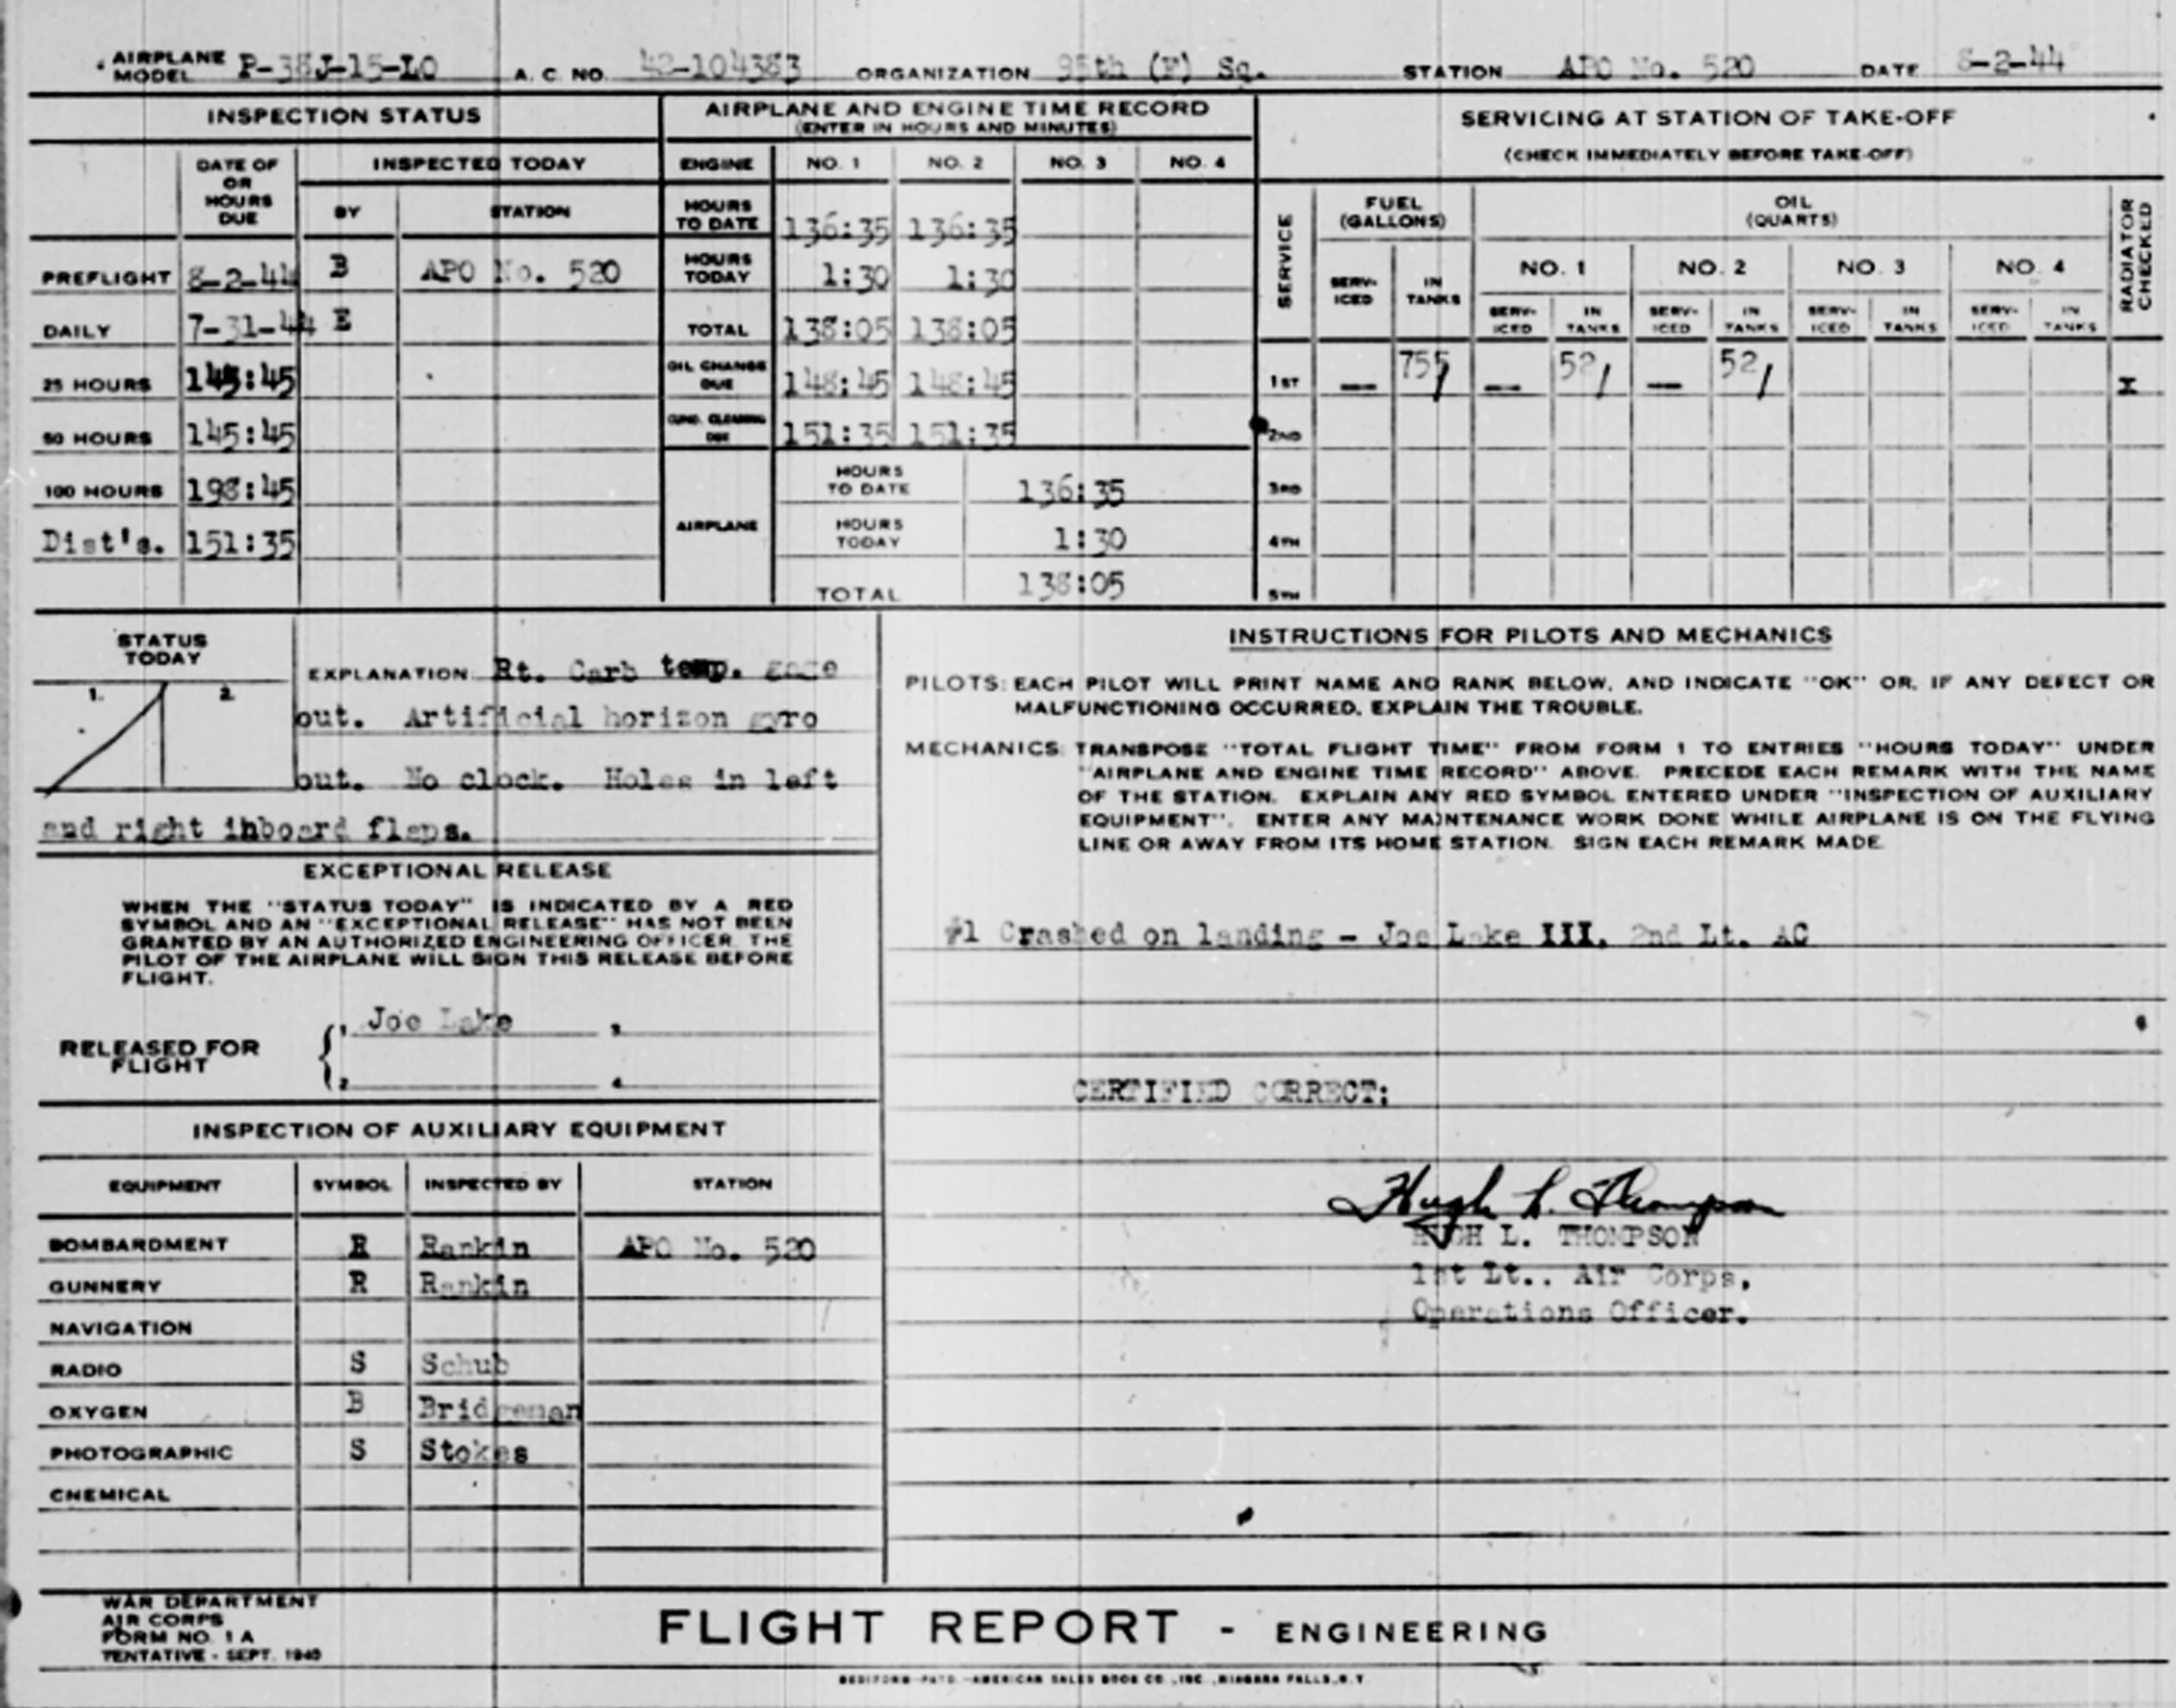 AIRPLANE MODEL P-38J-15-LO A. C. NO. 42-104383 ORGANIZATION 95th (F) Sq. STATION APO No. 520 DATE 8-2-44
INSPECTION STATUS
DATE OF OR HOURS DUE INSPECTED TODAY
BY STATION
PREFLIGHT 8-2-44 B APO No. 520
DAILY 7-31-44 E
25 HOURS 145:45
50 HOURS 145:45
100 HOURS 198:45
Dist's. 151:35
AIRPLANE AND ENGINE TIME RECORD
(ENTER IN HOURS AND MINUTES)
ENGINE NO. 1 NO. 2 NO. 3 NO. 4
HOURS TO DATE 136:35 136:35
HOURS TODAY 1:30 1:30
TOTAL 138:05 138:05
OIL CHANGE DUE 148:45 148:45
CUNO. CLEANING DUE 151:35 151:35
AIRPLANE
HOURS TO DATE 136:35
HOURS TODAY 1:30
TOTAL 138:05
SERVICING AT STATION OF TAKE-OFF
(CHECK IMMEDIATELY BEFORE TAKE-OFF)
SERVICE FUEL (GALLONS) OIL (QUARTS) RADIATOR CHECKED
NO. 1 NO. 2 NO. 3 NO. 4
SERV-ICED IN TANKS SERV-ICED IN TANKS SERV-ICED IN TANKS SERV-ICED IN TANKS SERV-ICED IN TANKS
1ST — 755/ — 52/ — 52/ X
2ND
3RD
4TH
5TH
STATUS TODAY
1. 2.
EXPLANATION: Rt. Carb temp. gage
out. Artificial horizon gyro
out. No clock. Holes in left
and right inboard flaps.
EXCEPTIONAL RELEASE
WHEN THE "STATUS TODAY" IS INDICATED BY A RED
SYMBOL AND AN "EXCEPTIONAL RELEASE" HAS NOT BEEN
GRANTED BY AN AUTHORIZED ENGINEERING OFFICER, THE
PILOT OF THE AIRPLANE WILL SIGN THIS RELEASE BEFORE
FLIGHT.
RELEASED FOR FLIGHT
1. Joe Lake 3.
2. 4.
INSPECTION OF AUXILIARY EQUIPMENT
EQUIPMENT SYMBOL INSPECTED BY STATION
BOMBARDMENT R Rankin APO No. 520
GUNNERY R Rankin
NAVIGATION
RADIO S Schub
OXYGEN B Bridgeman
PHOTOGRAPHIC S Stokes
CHEMICAL
INSTRUCTIONS FOR PILOTS AND MECHANICS
PILOTS: EACH PILOT WILL PRINT NAME AND RANK BELOW, AND INDICATE "OK" OR, IF ANY DEFECT OR
MALFUNCTIONING OCCURRED, EXPLAIN THE TROUBLE.
MECHANICS: TRANSPOSE "TOTAL FLIGHT TIME" FROM FORM 1 TO ENTRIES "HOURS TODAY" UNDER
"AIRPLANE AND ENGINE TIME RECORD" ABOVE. PRECEDE EACH REMARK WITH THE NAME
OF THE STATION. EXPLAIN ANY RED SYMBOL ENTERED UNDER "INSPECTION OF AUXILIARY
EQUIPMENT". ENTER ANY MAINTENANCE WORK DONE WHILE AIRPLANE IS ON THE FLYING
LINE OR AWAY FROM ITS HOME STATION. SIGN EACH REMARK MADE.
#1 Crashed on landing - Joe Lake III. 2nd Lt. AC
CERTIFIED CORRECT:
Hugh L. Thompson
HUGH L. THOMPSON
1st Lt., Air Corps,
Operations Officer.
WAR DEPARTMENT
AIR CORPS
FORM NO. 1 A
TENTATIVE - SEPT. 1940
FLIGHT REPORT - ENGINEERING
REDIFORM PATD.-AMERICAN SALES BOOK CO., INC., NIAGARA FALLS, N.Y.